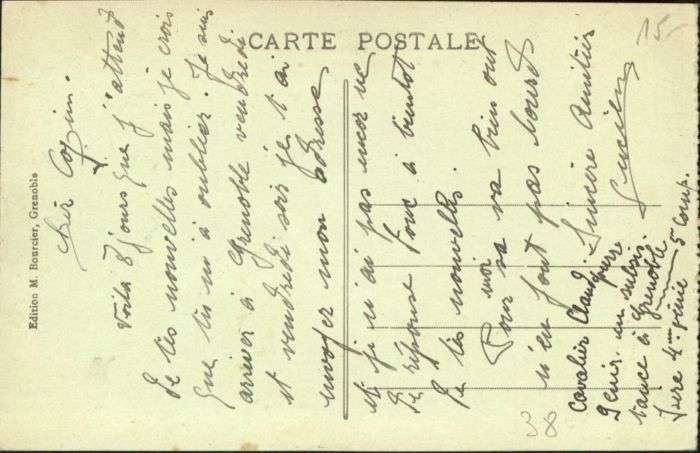 CARTE POSTALE
15-
Edition M. Bourcier, Grenoble
cher Copin.
Voila 8 jours que j'attend
de tes nouvelles mais je crois
que tu m'a oublier. Je suis
arriver à Grenoble vendredi
et vendredi soir je t'ai
envoyer mon adresse
et je n'ai pas encor
de réponse donc à bientot
de tes nouvelles.
Pour moi sa va bien ont
n'en fout pas lourd
Sincère Amitier
Lucien
Cavalier Claud pierre
subsis
tance à Grenoble
Isere 4me Génie 5 Comp.
38